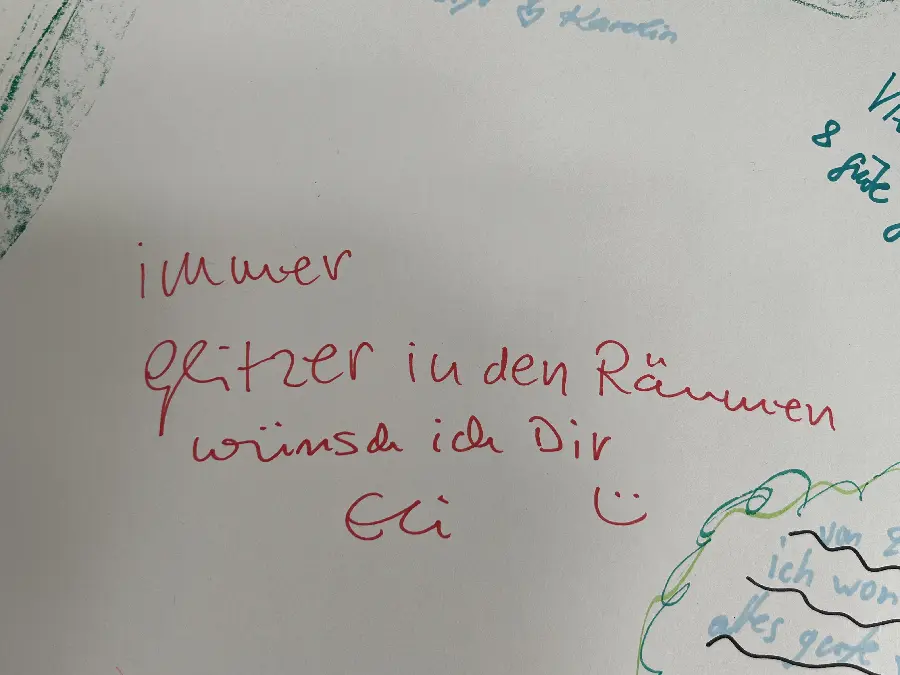 Karolin
& gute
immer
glitzer in den Räumen
wünsch ich Dir
Eli ü
von
ich
alles gute